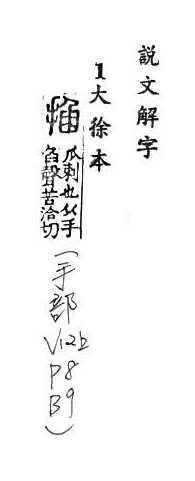 説文解字
1大徐本
掐
爪刺也从手
臽聲苦洽切
(手部V12上P8B9)